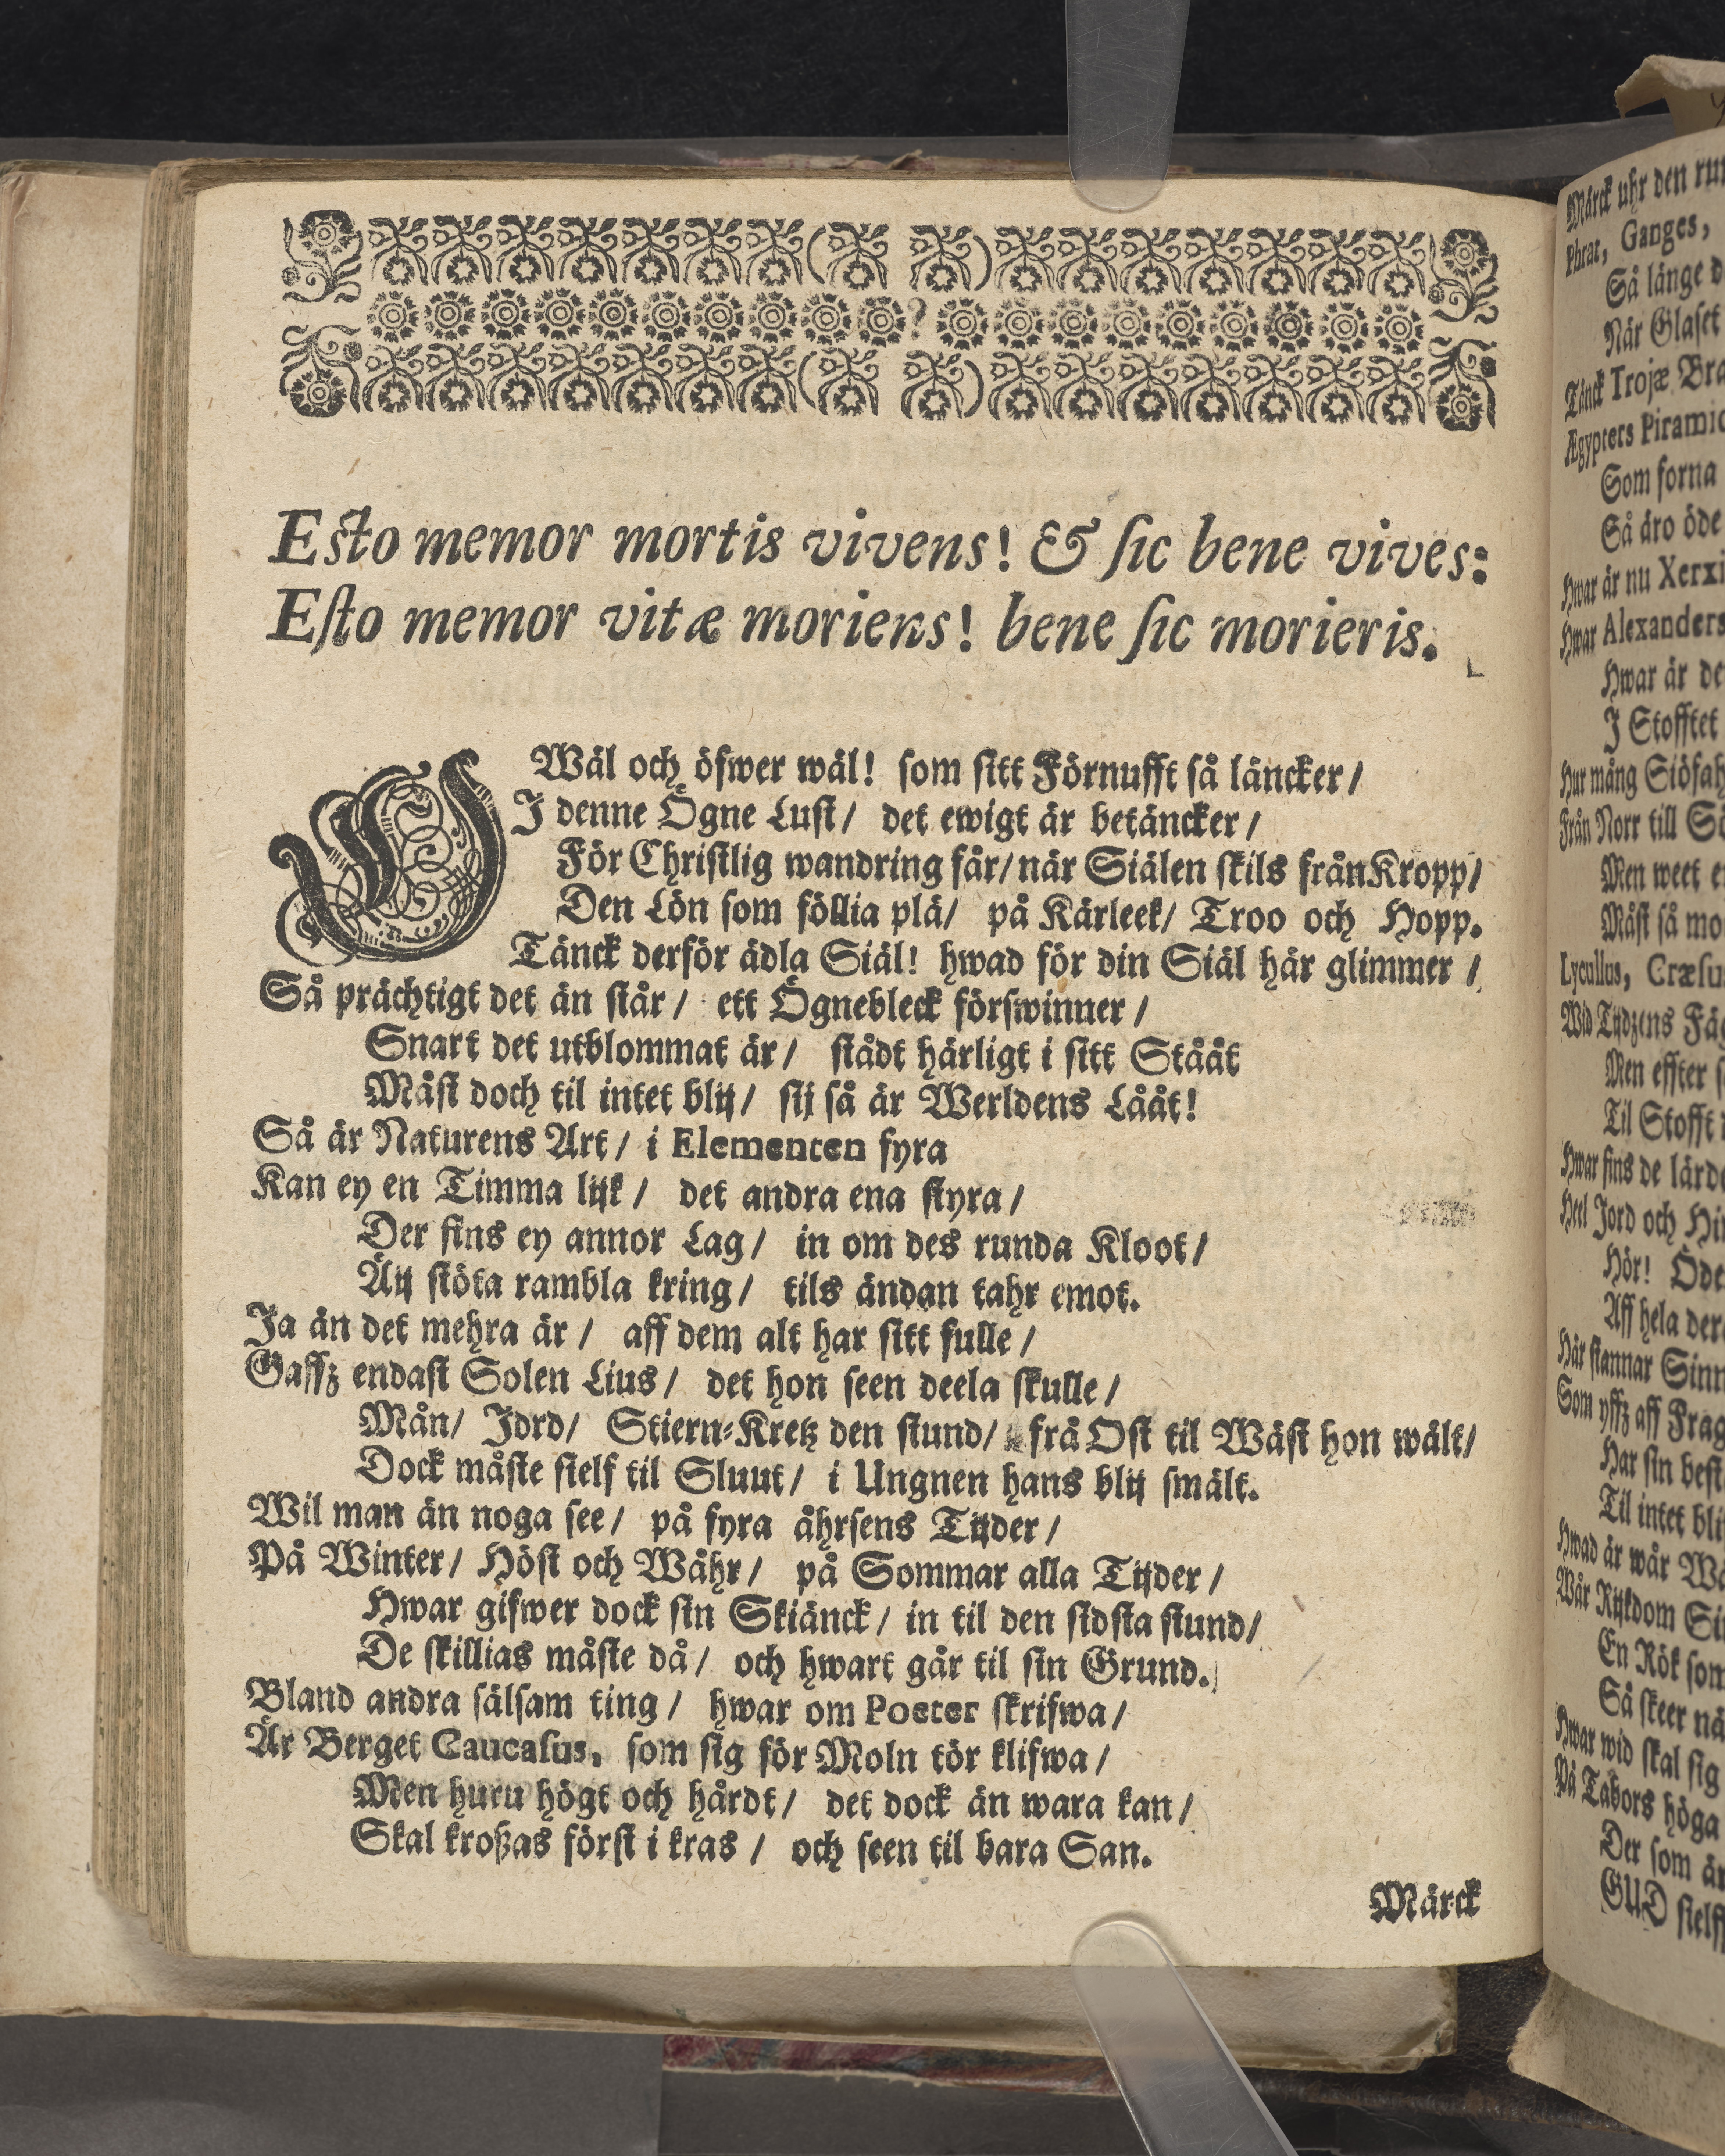 Esto memor mortis vivens! & ſic bene vives:
Eſto memor vitæ moriens! bene ſic morieris.
WWäl och öfwer wäl! ſom ſitt Förnufft ſå läncker /
J denne Ögne Luſt / det ewigt är betäncker /
För Chriſtlig wandring får / när Siälen ſkils frånKropp /
Den Lön ſom föllia plä / på Kärleek / Troo och Hopp.
Tänck derför ädla Siäl! hwad för din Siäl här glimmer /
Så prächtigt det än ſtår / ett Ögnebleck förſwinner /
Snart det utblommat är / ſtådt härligt i ſitt Stååt
Måſt doch til intet blij / ſij ſå är Werldens Lååt!
Så är Naturens Art / i Elementen fyra
Kan ey en Timma lijk / det andra ena ſtyra /
Der fins ey annor Lag / in om des runda Kloot /
Äij ſtöta rambla kring / tils ändan tahr emot.
Ja än det mehra är / aff dem alt har ſitt fulle /
Gaffz endaſt Solen Lius / det hon ſeen deela ſkulle /
Mån / Jord / Stiern-Kretz den ſtund / frå Oſt til Wäſt hon wält /
Dock måſte ſielf til Sluut / i Ungnen hans blij ſmält.
Wil man än noga ſee / på fyra åhrſens Tijder /
På Winter / Höſt och Wåhr / på Sommar alla Tijder /
Hwar gifwer dock ſin Skiänck / in til den ſidſta ſtund /
De ſkillias måſte då / och hwart går til ſin Grund.
Bland andra ſälſam ting / hwar om Poeter ſkrifwa /
Är Berget Caucaſus, ſom ſig för Moln tör klifwa /
Men huru högt och hårdt / det dock än wara kan /
Skal kroßas förſt i kras / och ſeen til bara San.
Märck
Märck uhr den
phrat, Ganges,
Så länge
När Glaſet
Tänck Trojæ
Ægypters
Som forna
Så äro öde
Hwar är nu
Hwar Alexanders
Hwar är
J Stofftet
Hur mång
Från Norr till
Men weet
Måſt ſå
Lycullus,
Wid Tijdzens
Men effter
Til Stofft
Hwar fins de
Heel Jord och
Hör!
Aff hela
Här ſtannar
Som yffz aff
Har ſin
Til intet
Hwad är wår
Wår Rijkdom
En Rök
Så ſkeer
Hwar wid ſkal ſig
På Tabors höga
Der ſom
GUD